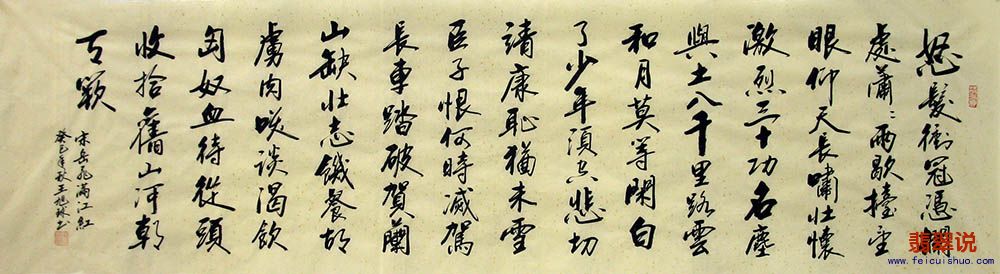 怒髮衝冠憑闌
處瀟〻雨歇擡望
眼仰天長嘯壯懷
激烈三十功名塵
與土八千里路雲
和月莫等閑白
了少年頭空悲切
靖康恥猶未雪
臣子恨何時滅駕
長車踏破賀蘭
山缺壯志饑餐胡
虜肉咲談渴飲
匈奴血待從頭
收拾舊山河朝
天闕
宋岳飛滿江紅
癸巳年秋王
翡翠说
www.feicuishuo.com